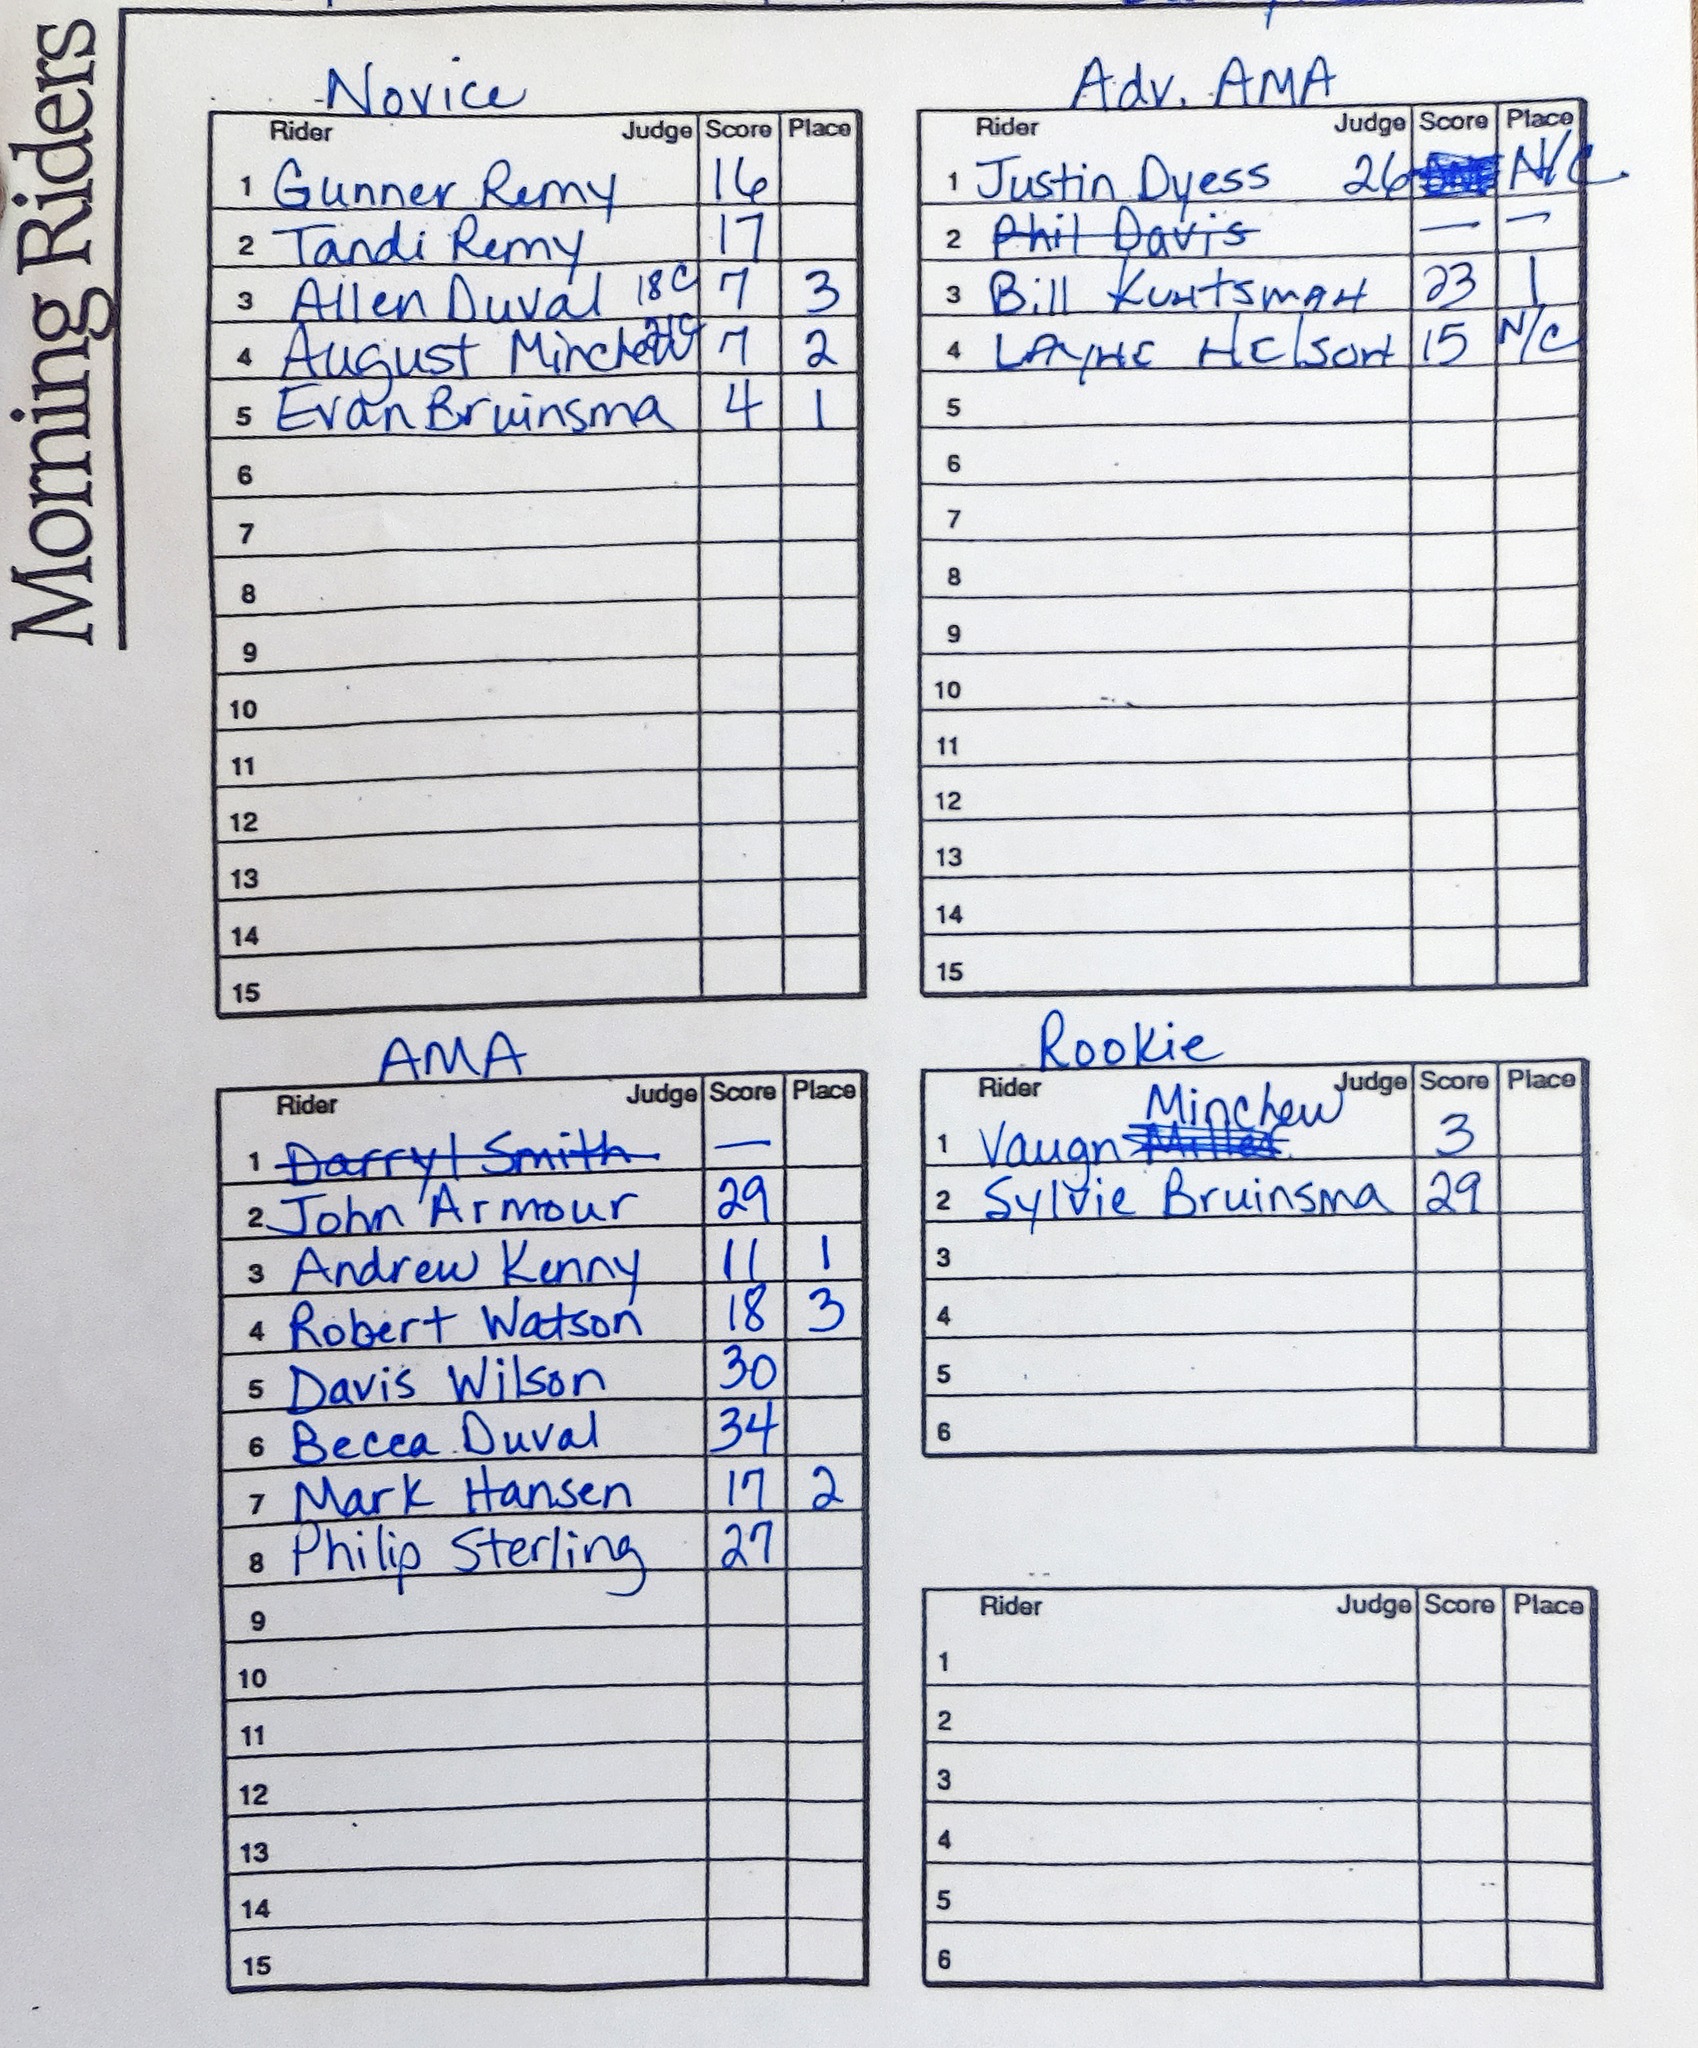 Morning Riders
Novice
Rider Judge Score Place
1 Gunner Remy 16
2 Tandi Remy 17
3 Allen Duval 18c 7 3
4 August Minchew 21c 7 2
5 Evan Bruinsma 4 1
6
7
8
9
10
11
12
13
14
15
Adv. AMA
Rider Judge Score Place
1 Justin Dyess 26 N/C
2 Phil Davis — —
3 Bill Kuntsman 23 1
4 Layne Nelson 15 N/C
5
6
7
8
9
10
11
12
13
14
15
AMA
Rider Judge Score Place
1 Darryl Smith —
2 John Armour 29
3 Andrew Kenny 11 1
4 Robert Watson 18 3
5 Davis Wilson 30
6 Becca Duval 34
7 Mark Hansen 17 2
8 Philip Sterling 27
9
10
11
12
13
14
15
Rookie
Rider Judge Score Place
Minchew
1 Vaugn Miller 3
2 Sylvie Bruinsma 29
3
4
5
6
Rider Judge Score Place
1
2
3
4
5
6